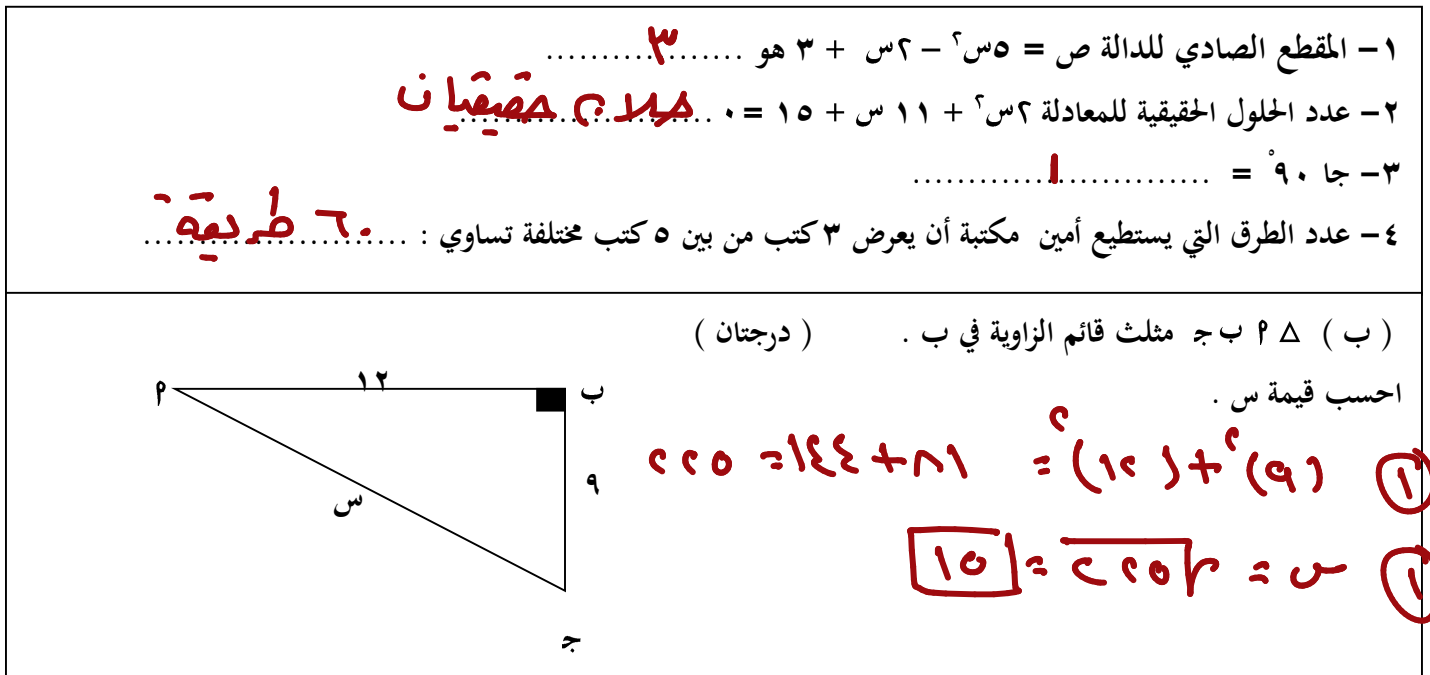 ١– المقطع الصادي للدالة ص = ٥س٢ – ٢س + ٣ هو .......٣...........
٢– عدد الحلول الحقيقية للمعادلة ٢س٢ + ١١ س + ١٥ = ٠ ....حلان حقيقيان....
٣– جا ٩٠° = ...............١............
٤– عدد الطرق التي يستطيع أمين مكتبة أن يعرض ٣ كتب من بين ٥ كتب مختلفة تساوي : ....٦٠ طريقة....
( ب ) △ ٩ ب جـ مثلث قائم الزاوية في ب . ( درجتان )
احسب قيمة س .
١ (٩)٢ + (١٢)٢ = ٨١ + ١٤٤ = ٢٢٥
١ س = √٢٢٥ = ١٥
١٢
ب
٩
٩
س
جـ